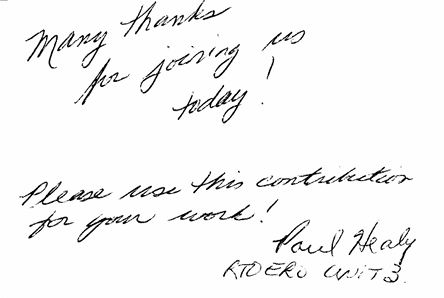 Many thanks
for joining us
today!
Please use this contribution
for your work!
Paul Healy
RTOERO UNIT 3